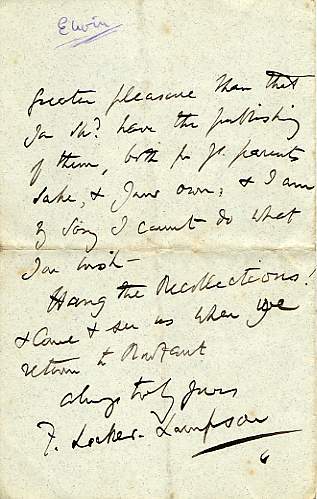 Elwin
greater pleasure than that
you shd. have the publishing
of them, both for yr. parents
sake, & your own; & I am
so sorry I cannot do what
you wish—
Hang the Recollections!
& Come & see us when we
return to Rowfant
always truly yours
F. Locker-Lampson